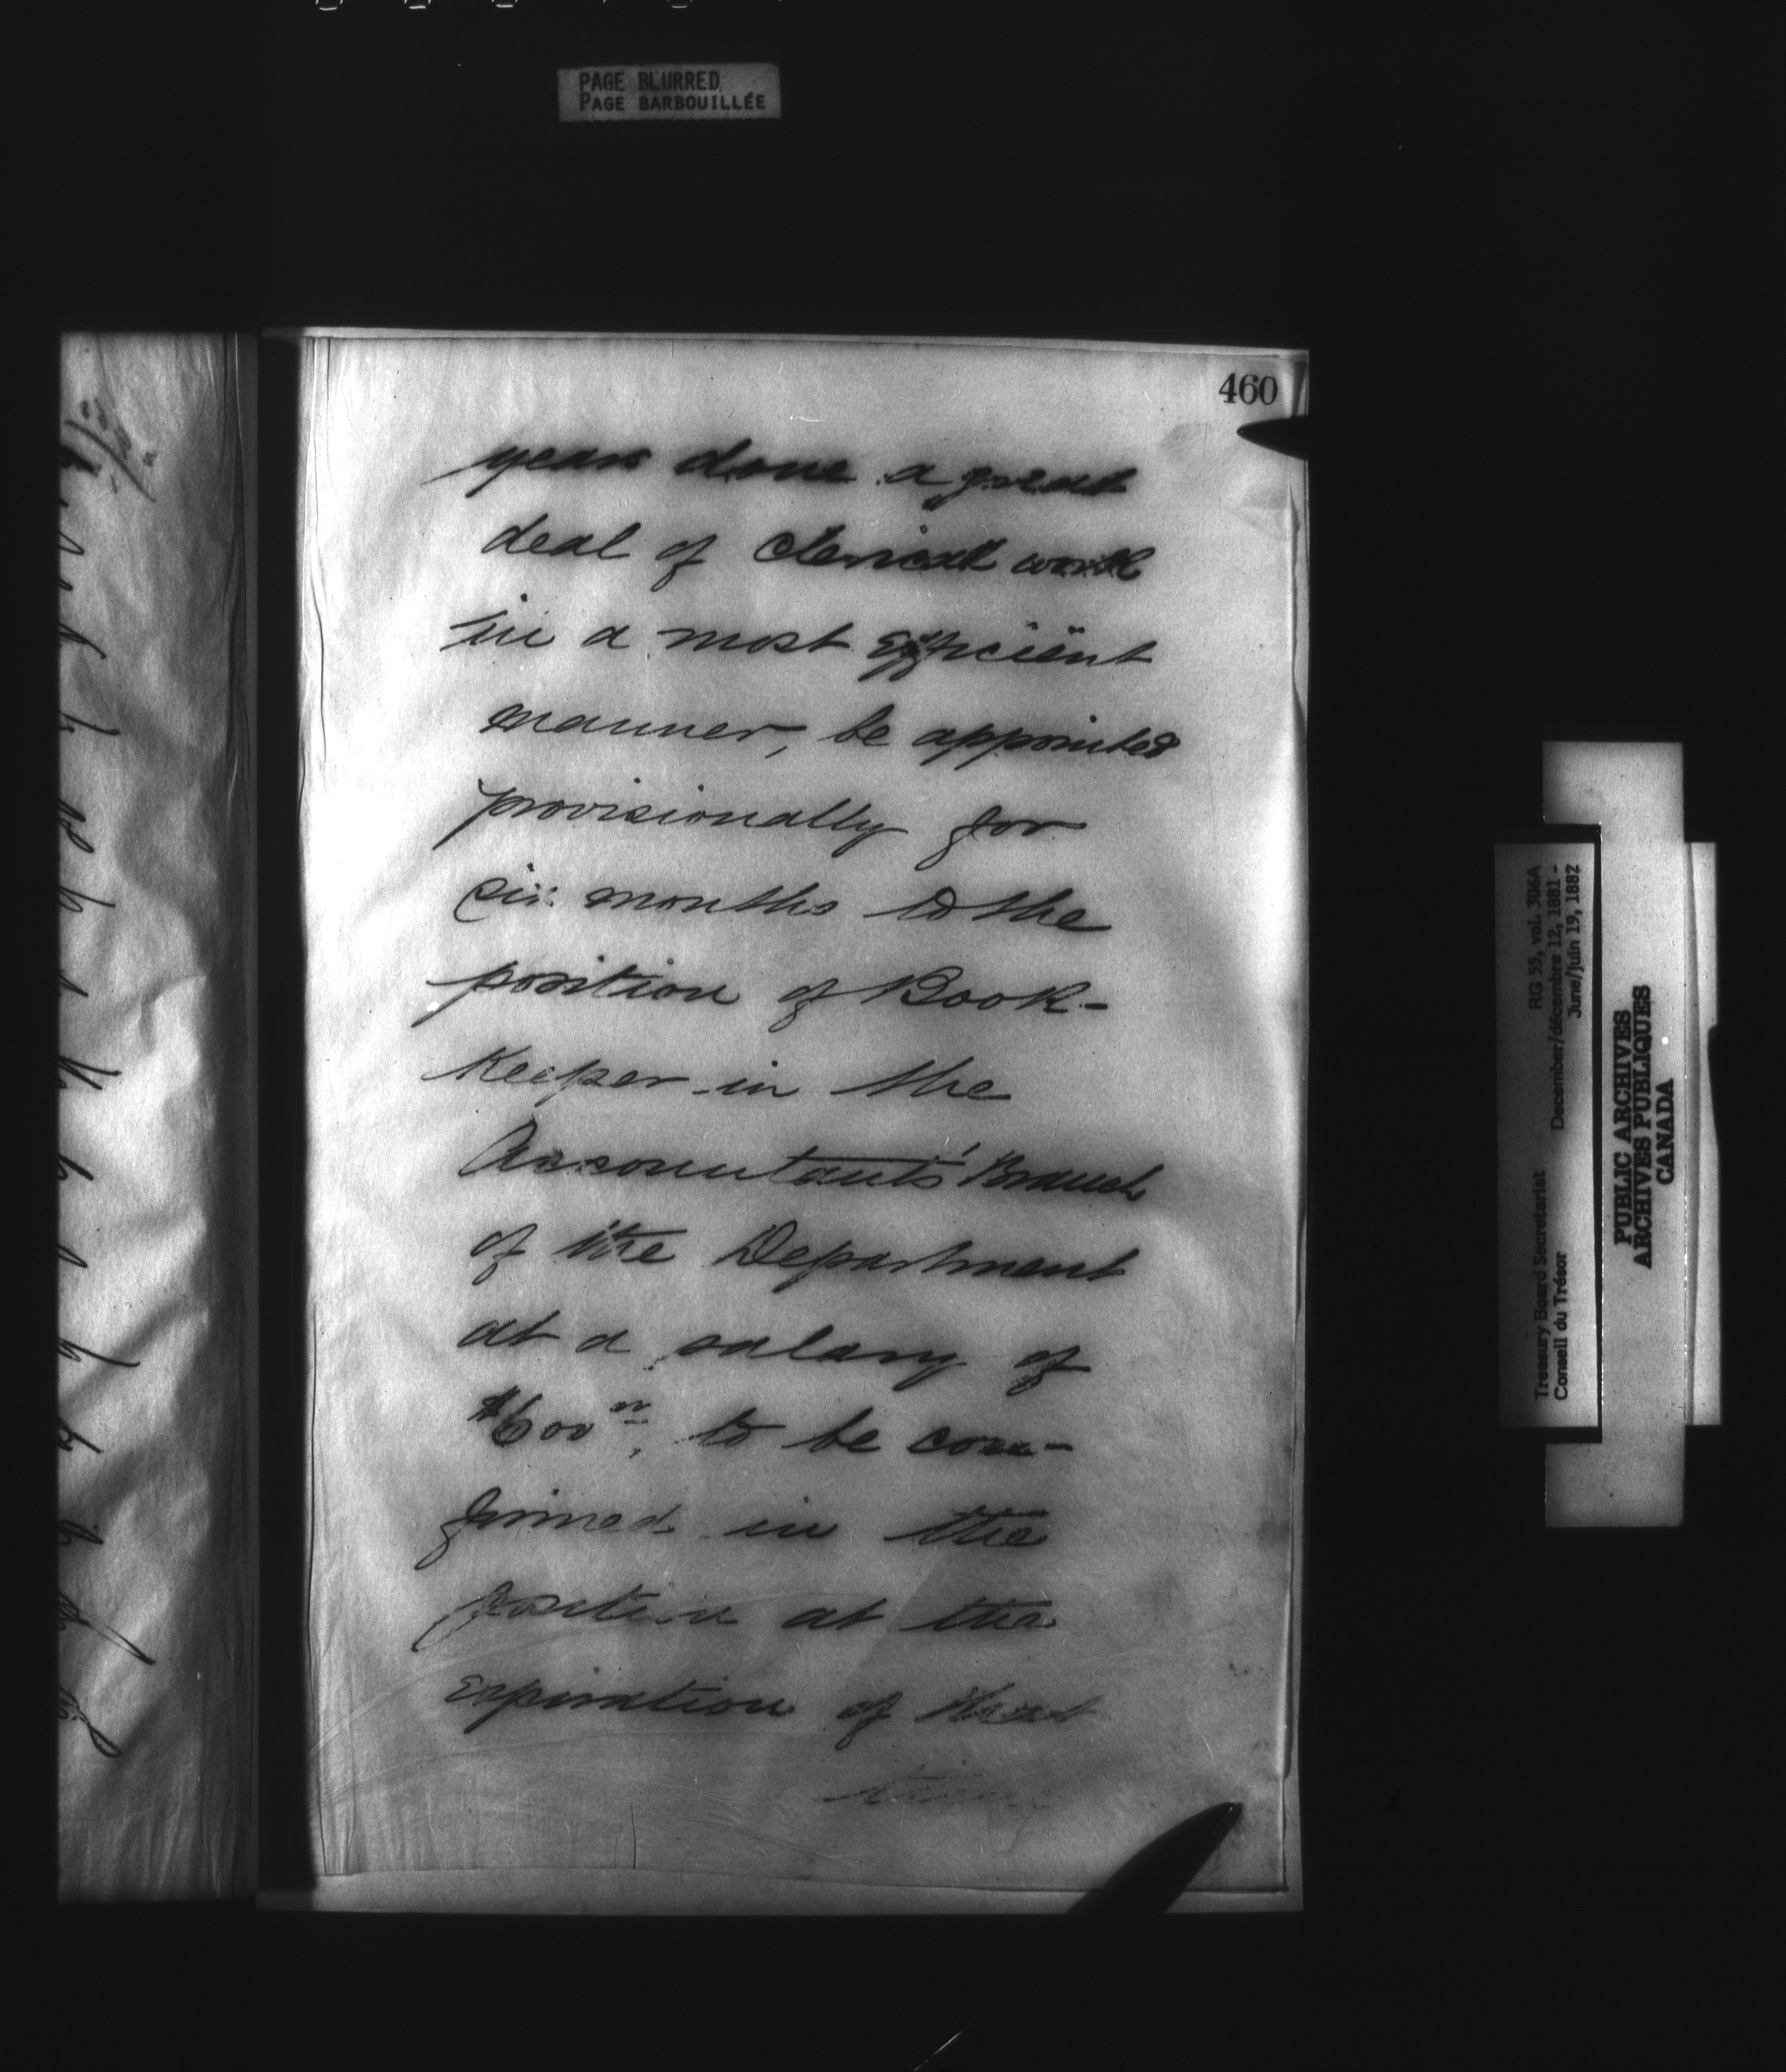 PAGE BLURRED
PAGE BARBOUILLÉE
460
years done a great
deal of clerical work
in a most efficient
manner, be appointed
provisionally for
six months to the
position of Book-
Keeper in the
Accountants' Branch
of the Department
at a salary of
$600⁰⁰, to be con-
firmed in the
position at the
expiration of that
time
Treasury Board Secretariat RG 55, vol. 306A
Conseil du Trésor December/décembre 12, 1881 -
June/juin 19, 1882
PUBLIC ARCHIVES
ARCHIVES PUBLIQUES
CANADA